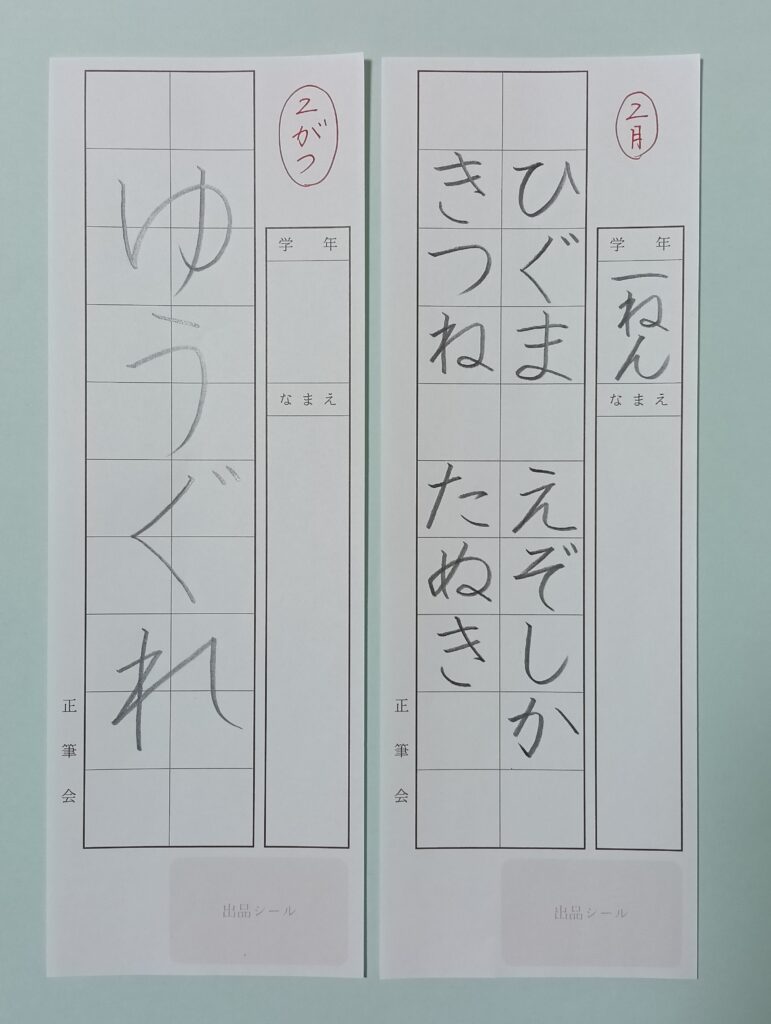 2月
学年
一ねん
なまえ
ひぐま えぞしか
きつね たぬき
正筆会
出品シール
2がつ
学年
なまえ
ゆうぐれ
正筆会
出品シール